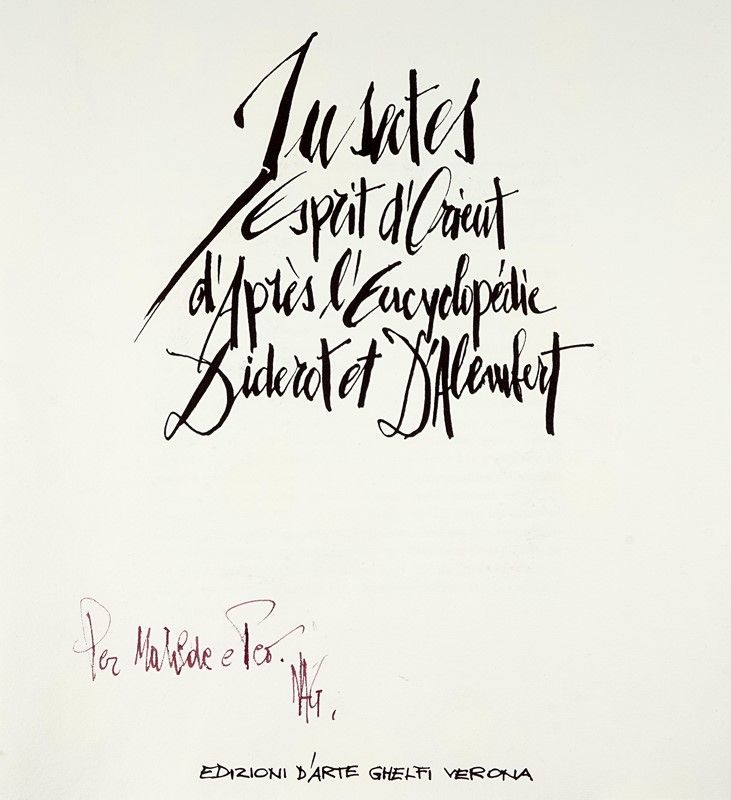 Insectes
Esprit d'Orient
d'Après l'Encyclopédie
Diderot et D'Alembert
Per Matilde e Teo.
EDIZIONI D'ARTE GHELFI VERONA